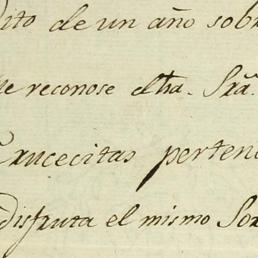 dito de un año sobr
se reconose dha. Sra.
Crucecitas pertene
disfruta el mismo Sor